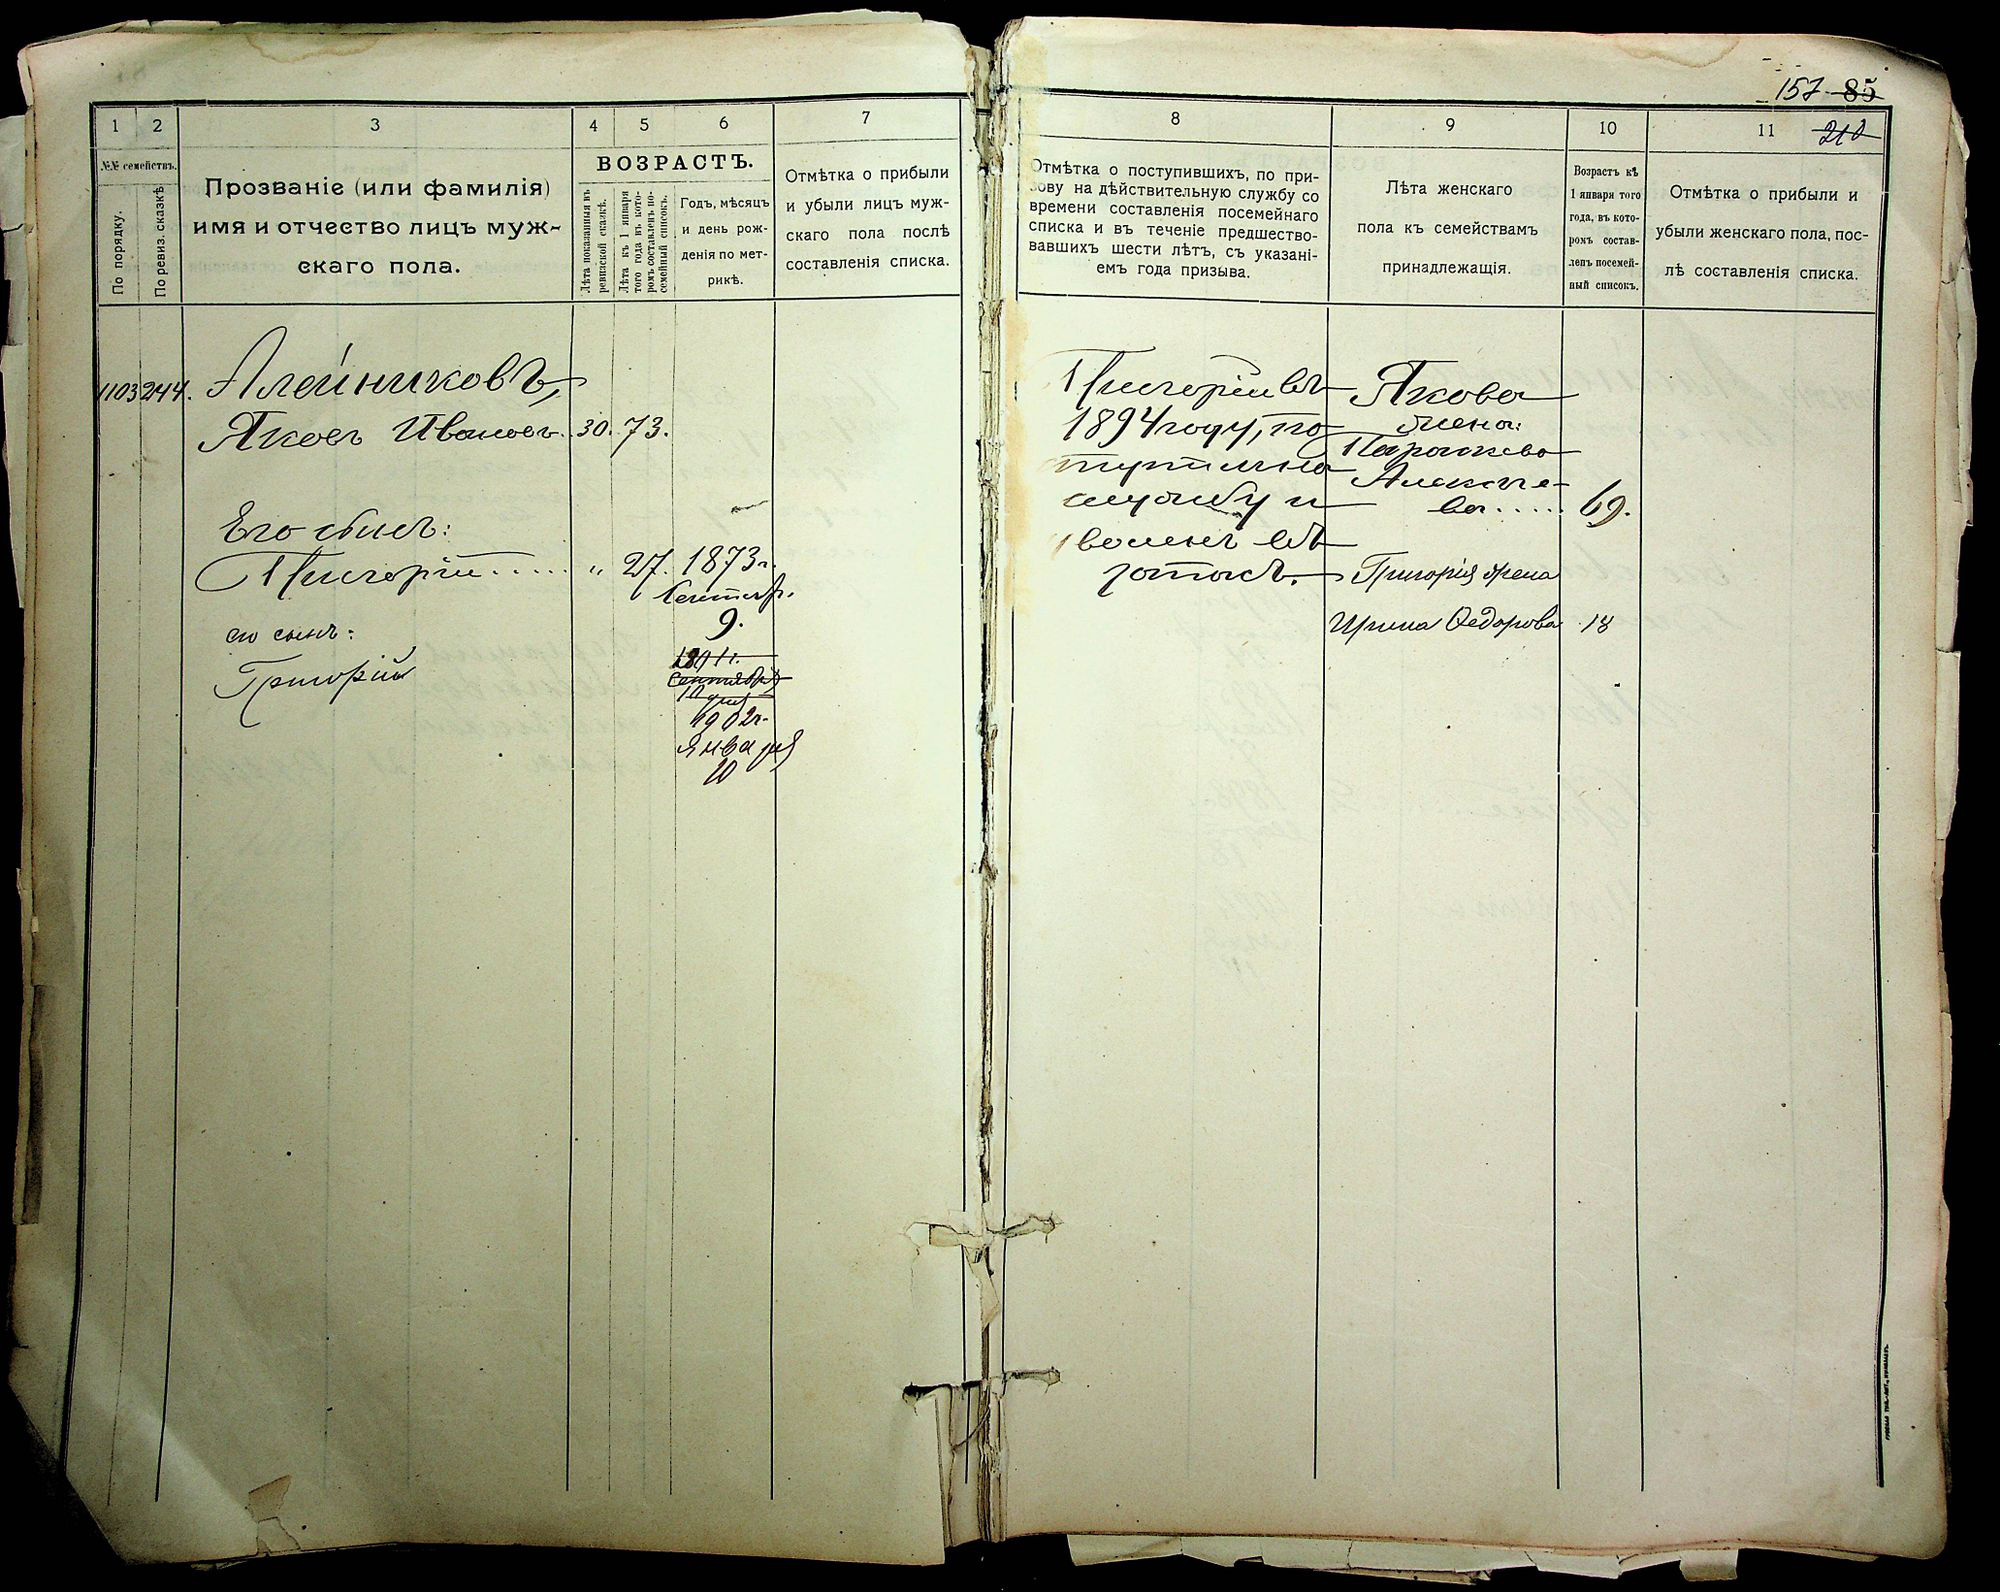 157 85
212
1
2
3
4
5
6
7
№№ семействъ.
По порядку.
По ревиз. сказкѣ
Прозваніе (или фамилія)
имя и отчество лицъ муж-
скаго пола.
ВОЗРАСТЪ.
Лѣта показанныя въ
ревизской сказкѣ.
Лѣта къ 1 января
того года въ кото-
ромъ составленъ по-
семейный списокъ.
Годъ, мѣсяцъ
и день рож-
денія по мет-
рикѣ.
Отмѣтка о прибыли
и убыли лицъ муж-
скаго пола послѣ
составленія списка.
1103 244. Алейниковъ,
Яковъ Ивановъ. 30. 73.
Его сынъ:
Григорій..... " 27. 1873г.
Сентябр.
9.
его сынъ:
Григорій
1901г.
Сентября
10 дня
1902г.
января
20
8
9
10
11
Отмѣтка о поступившихъ, по при-
зову на дѣйствительную службу со
времени составленія посемейнаго
списка и въ теченіе предшество-
вавшихъ шести лѣтъ, съ указані-
емъ года призыва.
Лѣта женскаго
пола къ семействамъ
принадлежащія.
Возрастъ къ
1 января того
года, въ кото-
ромъ состав-
ленъ посемей-
ный списокъ.
Отмѣтка о прибыли и
убыли женскаго пола, пос-
лѣ составленія списка.
Григорій въ
1894 году, по
ступилъ на
службу и
уволенъ въ
Якова
жена:
Парасковья
Алексѣе-
ва..... 69.
Григорія жена
Ирина Ѳедорова 18